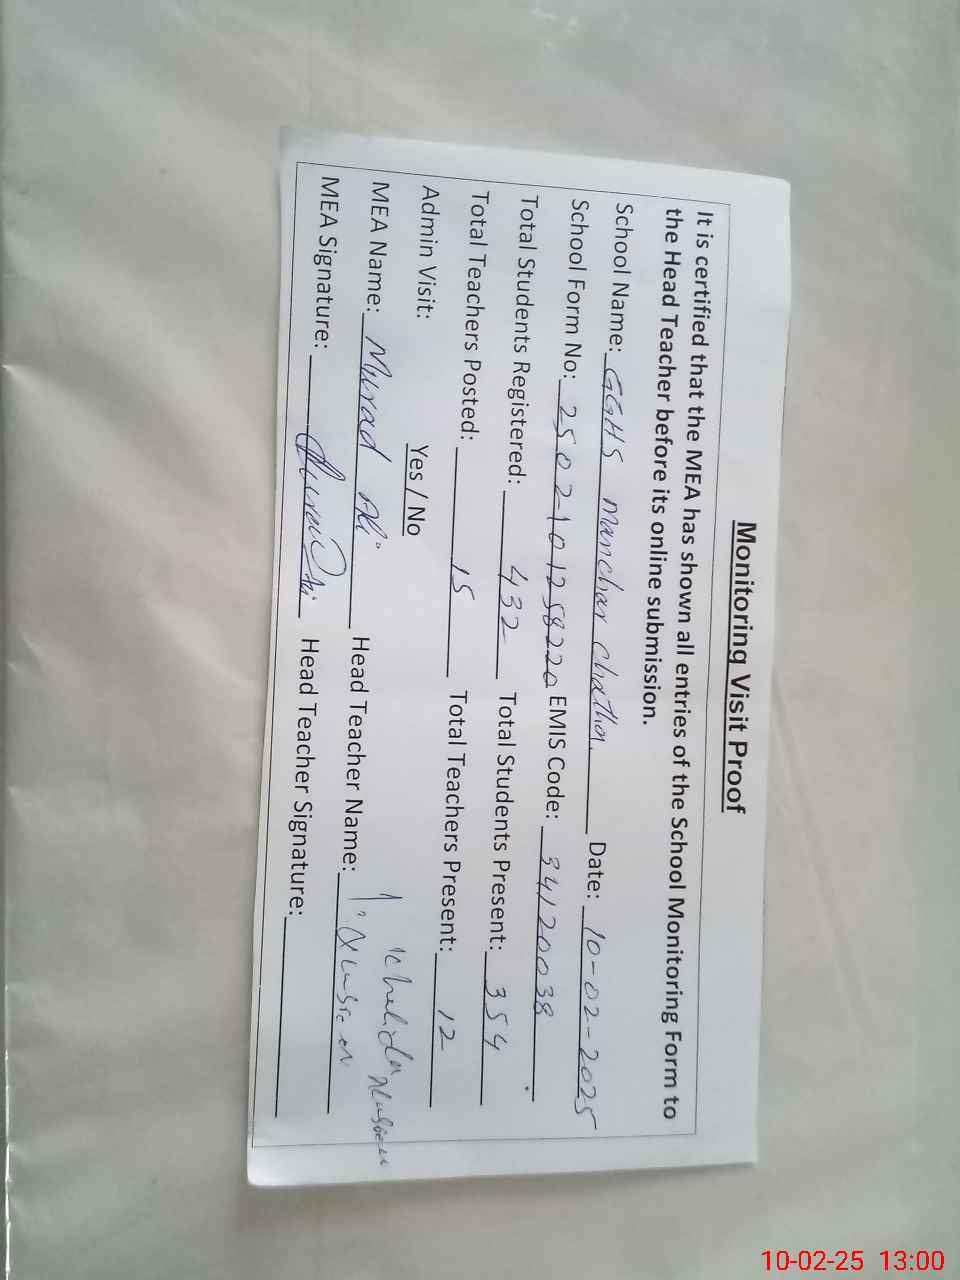 Monitoring Visit Proof
It is certified that the MEA has shown all entries of the School Monitoring Form to
the Head Teacher before its online submission.
School Name: GGHS Manchar Chatha. Date: 10-02-2025
School Form No: 250210125822 EMIS Code: 34120038
Total Students Registered: 432 Total Students Present: 354
Total Teachers Posted: 15 Total Teachers Present: 12
Admin Visit: Yes / No
MEA Name: Murad Ali Head Teacher Name:
MEA Signature: Head Teacher Signature:
10-02-25 13:00